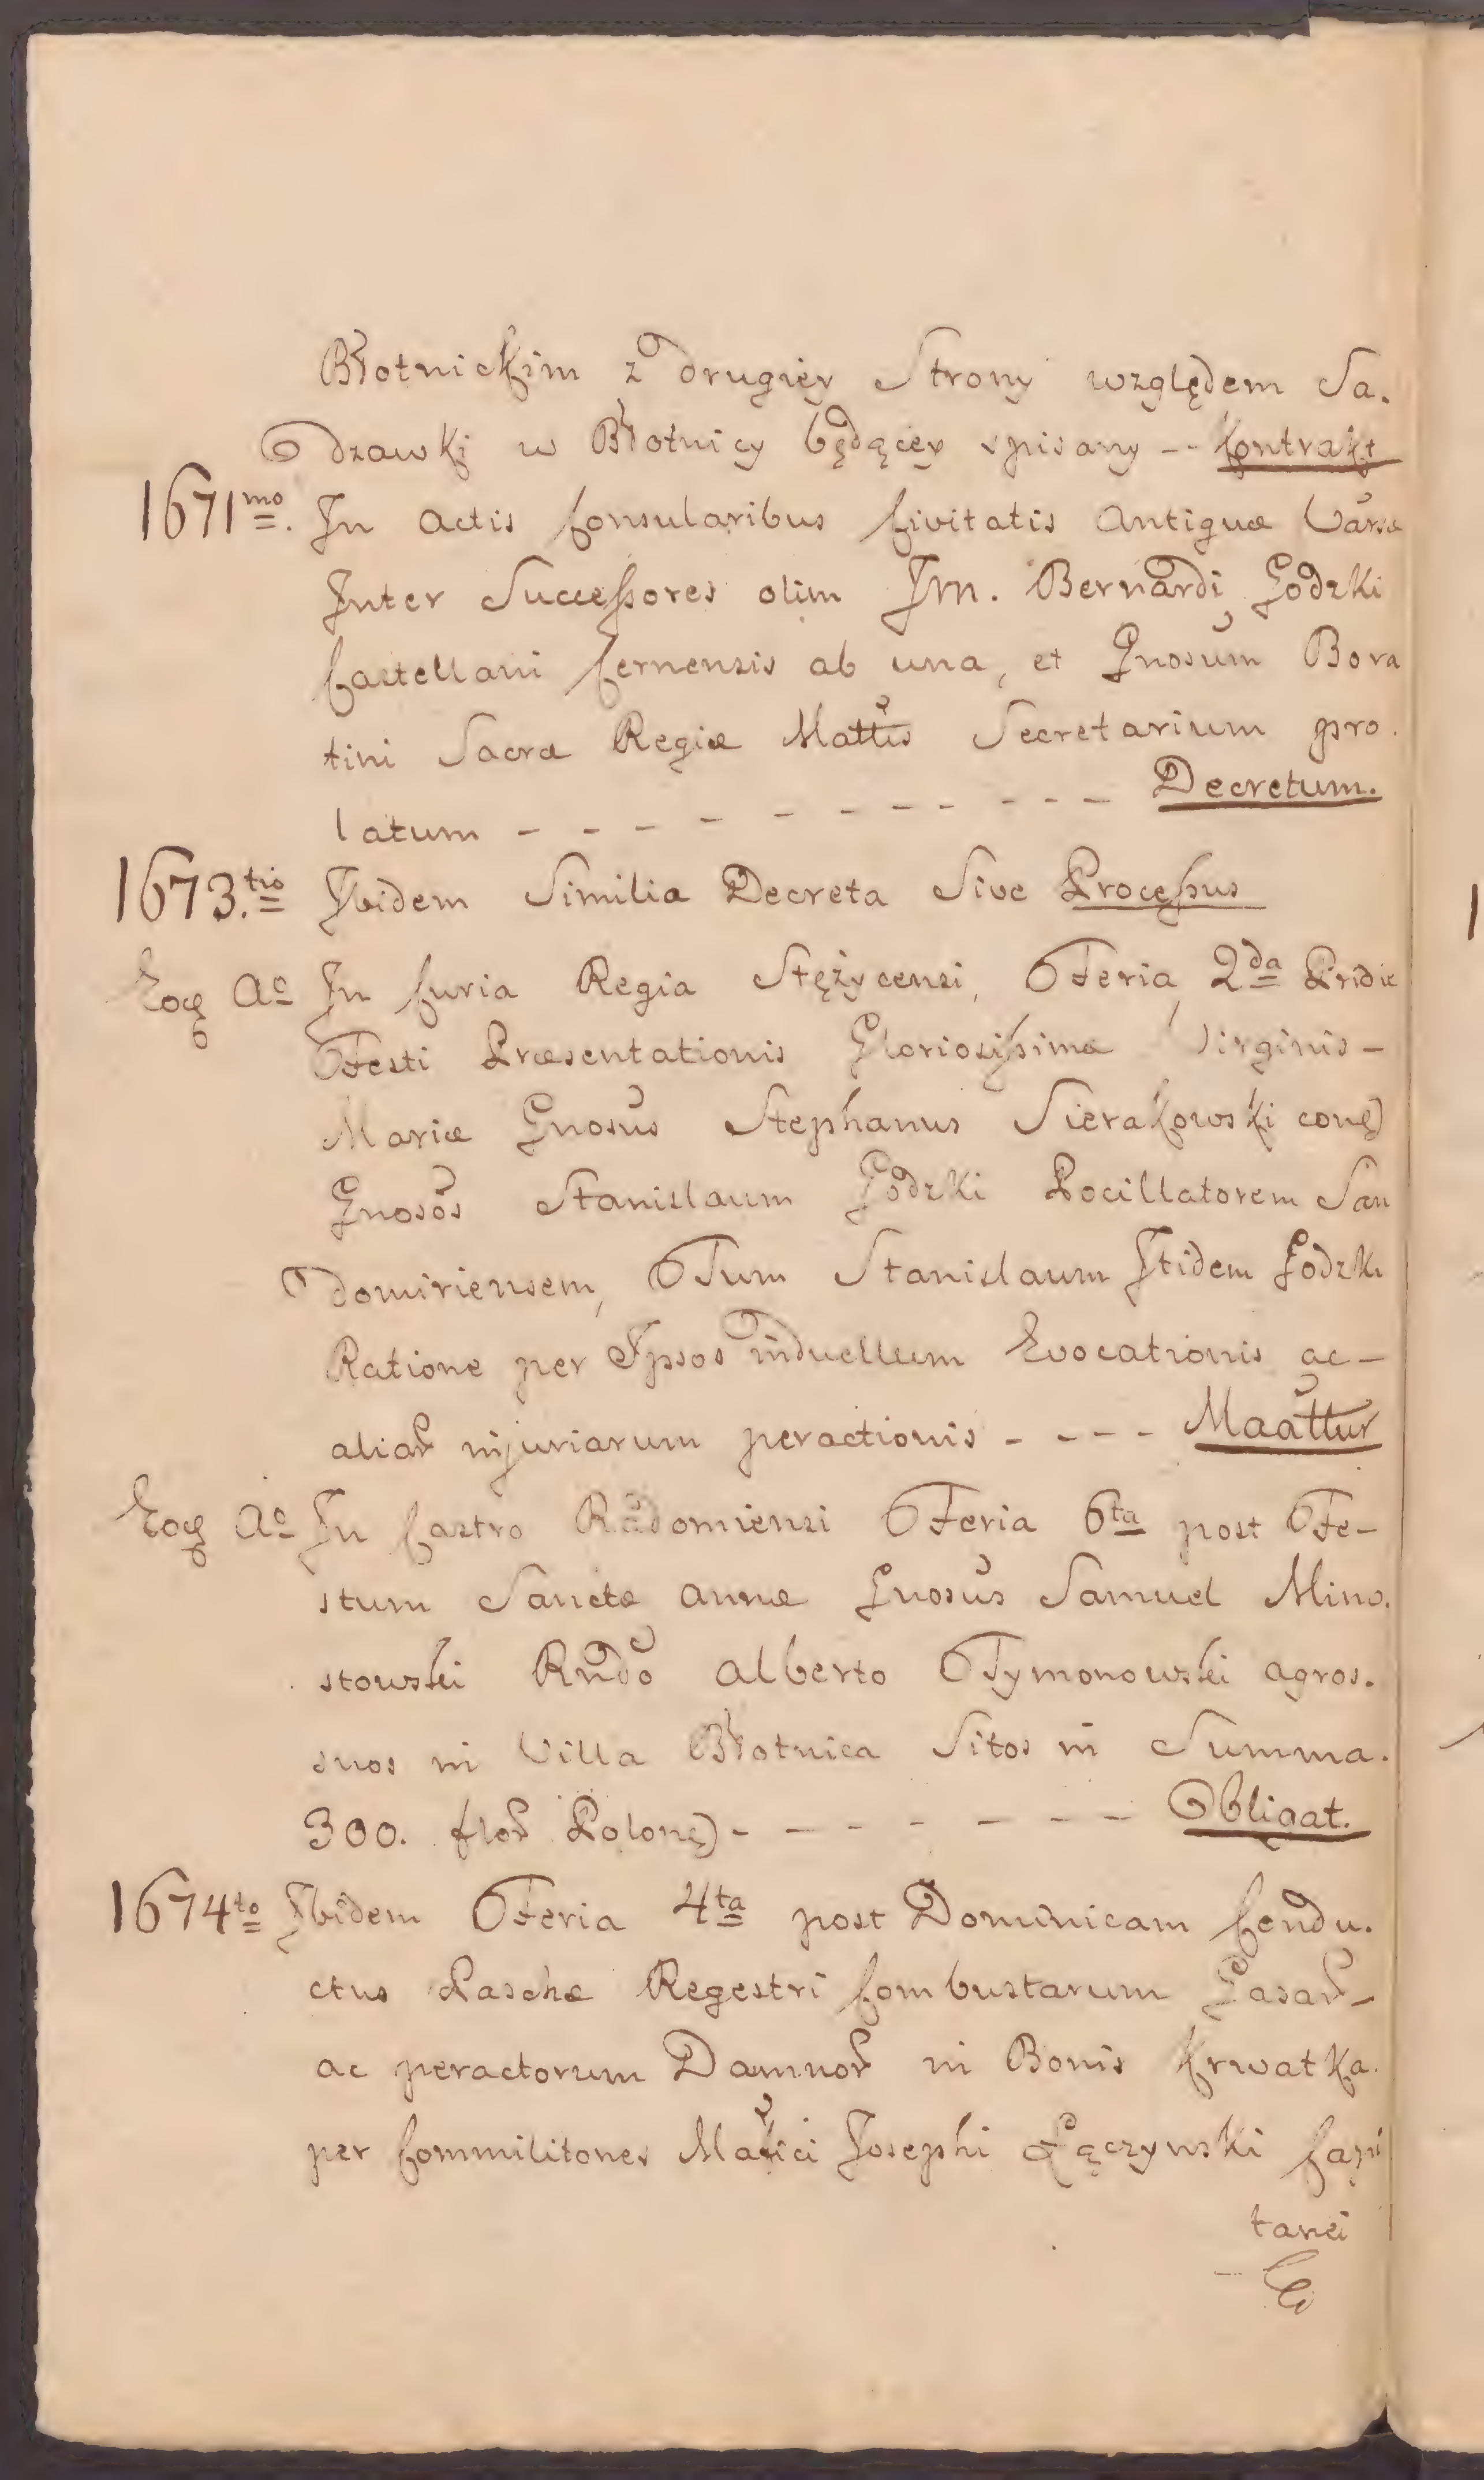 Błotnickim z drugiey Strony względem Sa.
dzawki w Błotnicy będącey spisany -- Kontrakt
1671mo. In Actis Consularibus Civitatis Antiquæ Varsæ
Inter Successores olim Jm. Bernardi Godzki
Castellani Cernensis ab una, et Gnosum Bora
tini Sacræ Regiæ Mattis Secretarium pro.
latum - - - - - - - - - - Decretum.
1673.tio Ibidem Similia Decreta Sive Processus
Eoq Ao In Curia Regia Stężycensi, Feria 2da Pridie
Festi Præsentationis Gloriosissimæ Virginis -
Mariæ Gnosus Stephanus Sierakowski con
Gnosos Stanislaum Godzki Pocillatorem San
domiriensem, Tum Stanislaum Itidem Godzki
Ratione per Ipsos induellum Evocationis ac -
aliar injuriarum peractionis - - - - Maattur
Eoq Ao In Castro Radomiensi Feria 6ta post Fe-
stum Sanctæ Annæ Gnosus Samuel Mino.
stowski Rndo Alberto Tymonowski agros.
suos in Villa Błotnica Sitos in Summa.
300. flor Polon - - - - - - - Obligat.
1674to Ibidem Feria 4ta post Dominicam Condu.
ctus Paschæ Regestri Combustarum Casar -
ac peractorum Damnor in Bonis Krwatka.
per Commilitones Mafici Josephi Łączynski Capi
tanei